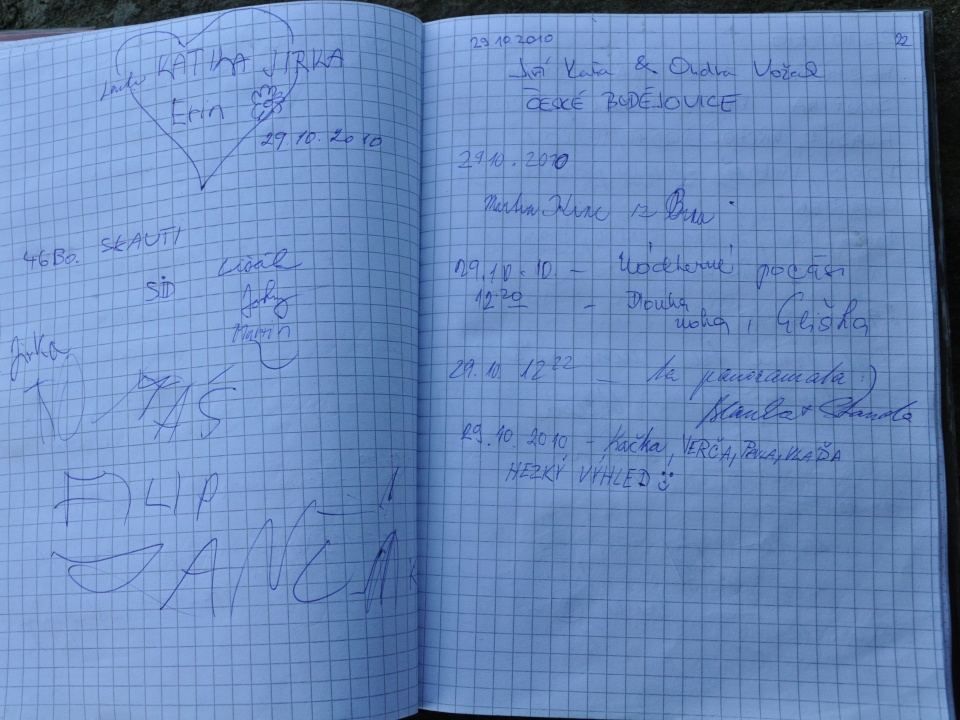 KATKA JIRKA
Erin
29.10.2010
46 Bo. SKAUTI
SID
Martin
Jirka
FILIP
JANČA
22
29 10 2010
Jiří Kája & Ondra
ČESKÉ BUDĚJOVICE
29 10. 2010
Martin z Brna
29.10.10. – Nádherné počasí
12 20 – Dlouhá
noha, Eliška
29.10. 12 22 – panoramata :)
Blanka + Standa
29.10 2010 – Kačka, VERČA, PAVLA, VLAĎA
HEZKÝ VÝHLED